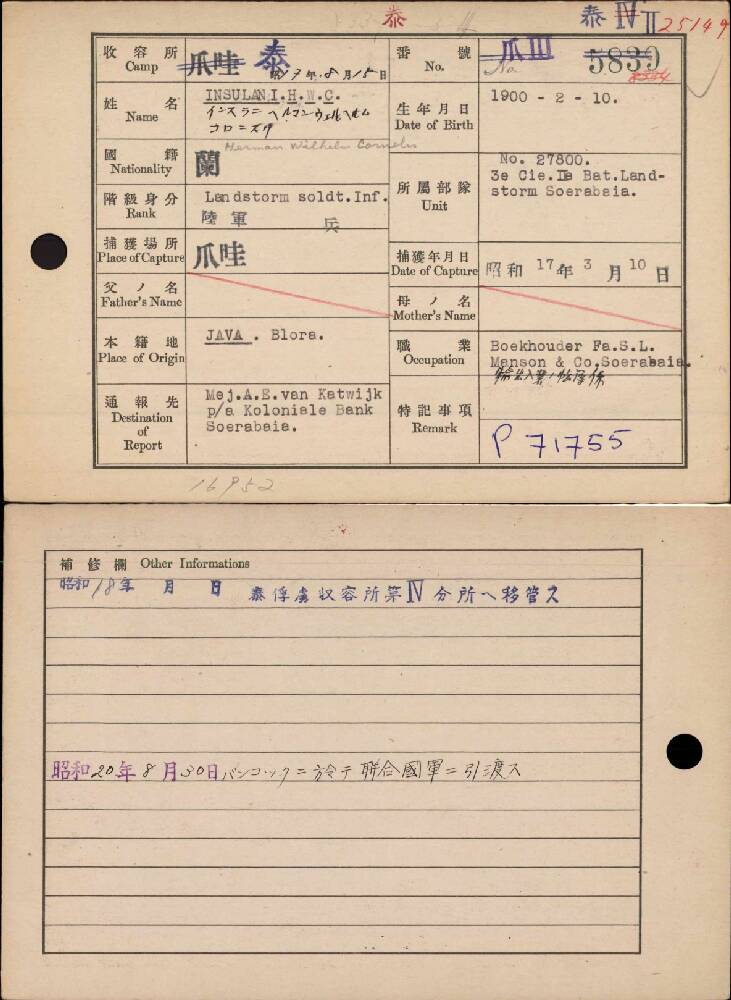 泰
泰 IV II 25149
收容所 Camp
爪哇 泰
昭17年8月15日
番號 No.
爪 III
No.
5839
姓名 Name
INSULANI.H.W.C.
インスラニ ヘルマンウェルヘルム
コロニズ
生年月日 Date of Birth
1900 - 2 - 10.
國籍 Nationality
Herman Wilhelm Cornelis
蘭
所屬部隊 Unit
No. 27800.
3e Cie.IIe Bat.Land-
storm Soerabaia.
階級身分 Rank
Landstorm soldt.Inf.
陸軍 兵
捕獲場所 Place of Capture
爪哇
捕獲年月日 Date of Capture
昭和 17年 3月 10日
父ノ名 Father's Name
母ノ名 Mother's Name
本籍地 Place of Origin
JAVA . Blora.
職業 Occupation
Boekhouder Fa.S.L.
Manson & Co.Soerabaia.
通報先 Destination of Report
Mej.A.E.van Katwijk
p/a Koloniale Bank
Soerabaia.
特記事項 Remark
P 71755
16952
補修欄 Other Informations
昭和18年 月 日 泰俘虜収容所第IV分所ヘ移管ス
昭和20年8月30日バンコックニ於テ聯合國軍ニ引渡ス